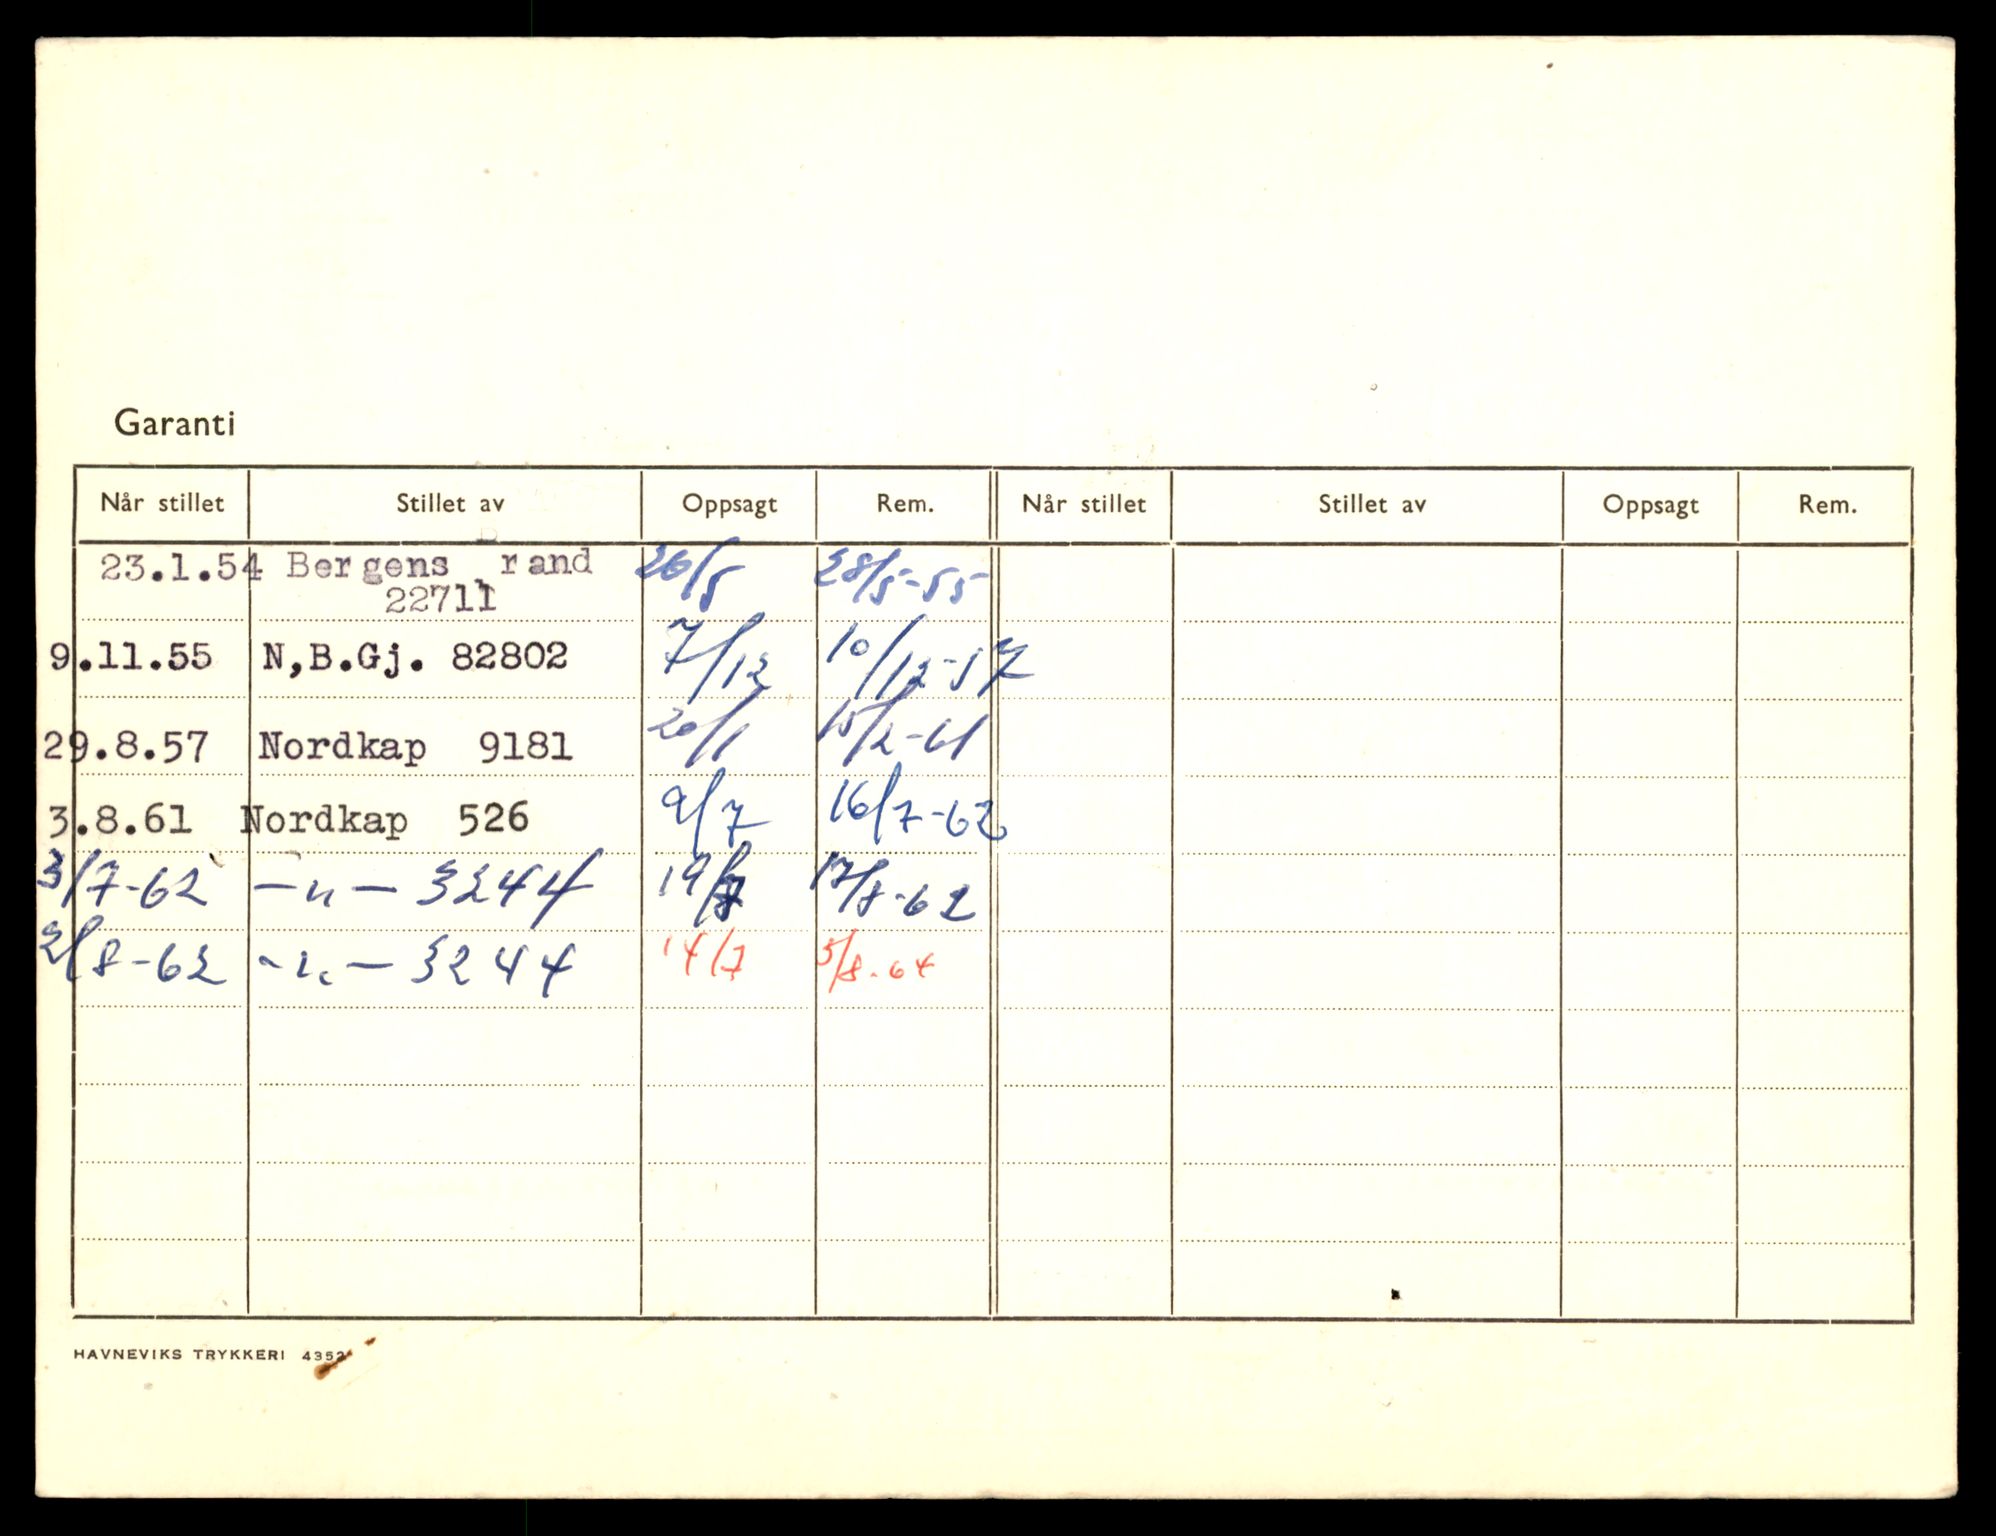 Garanti
Når stillet Stillet av Oppsagt Rem. Når stillet Stillet av Oppsagt Rem.
23.1.54 Bergens rand 26/5 28/5-55
22711
9.11.55 N,B.Gj. 82802 7/12 10/12-57
29.8.57 Nordkap 9181 20/1 15/2-61
3.8.61 Nordkap 526 9/7 16/7-62
3/7-62 -"- 3244 19/7 17/8-62
2/8-62 -"- 3244 14/7 5/8-64
HAVNEVIKS TRYKKERI 4352